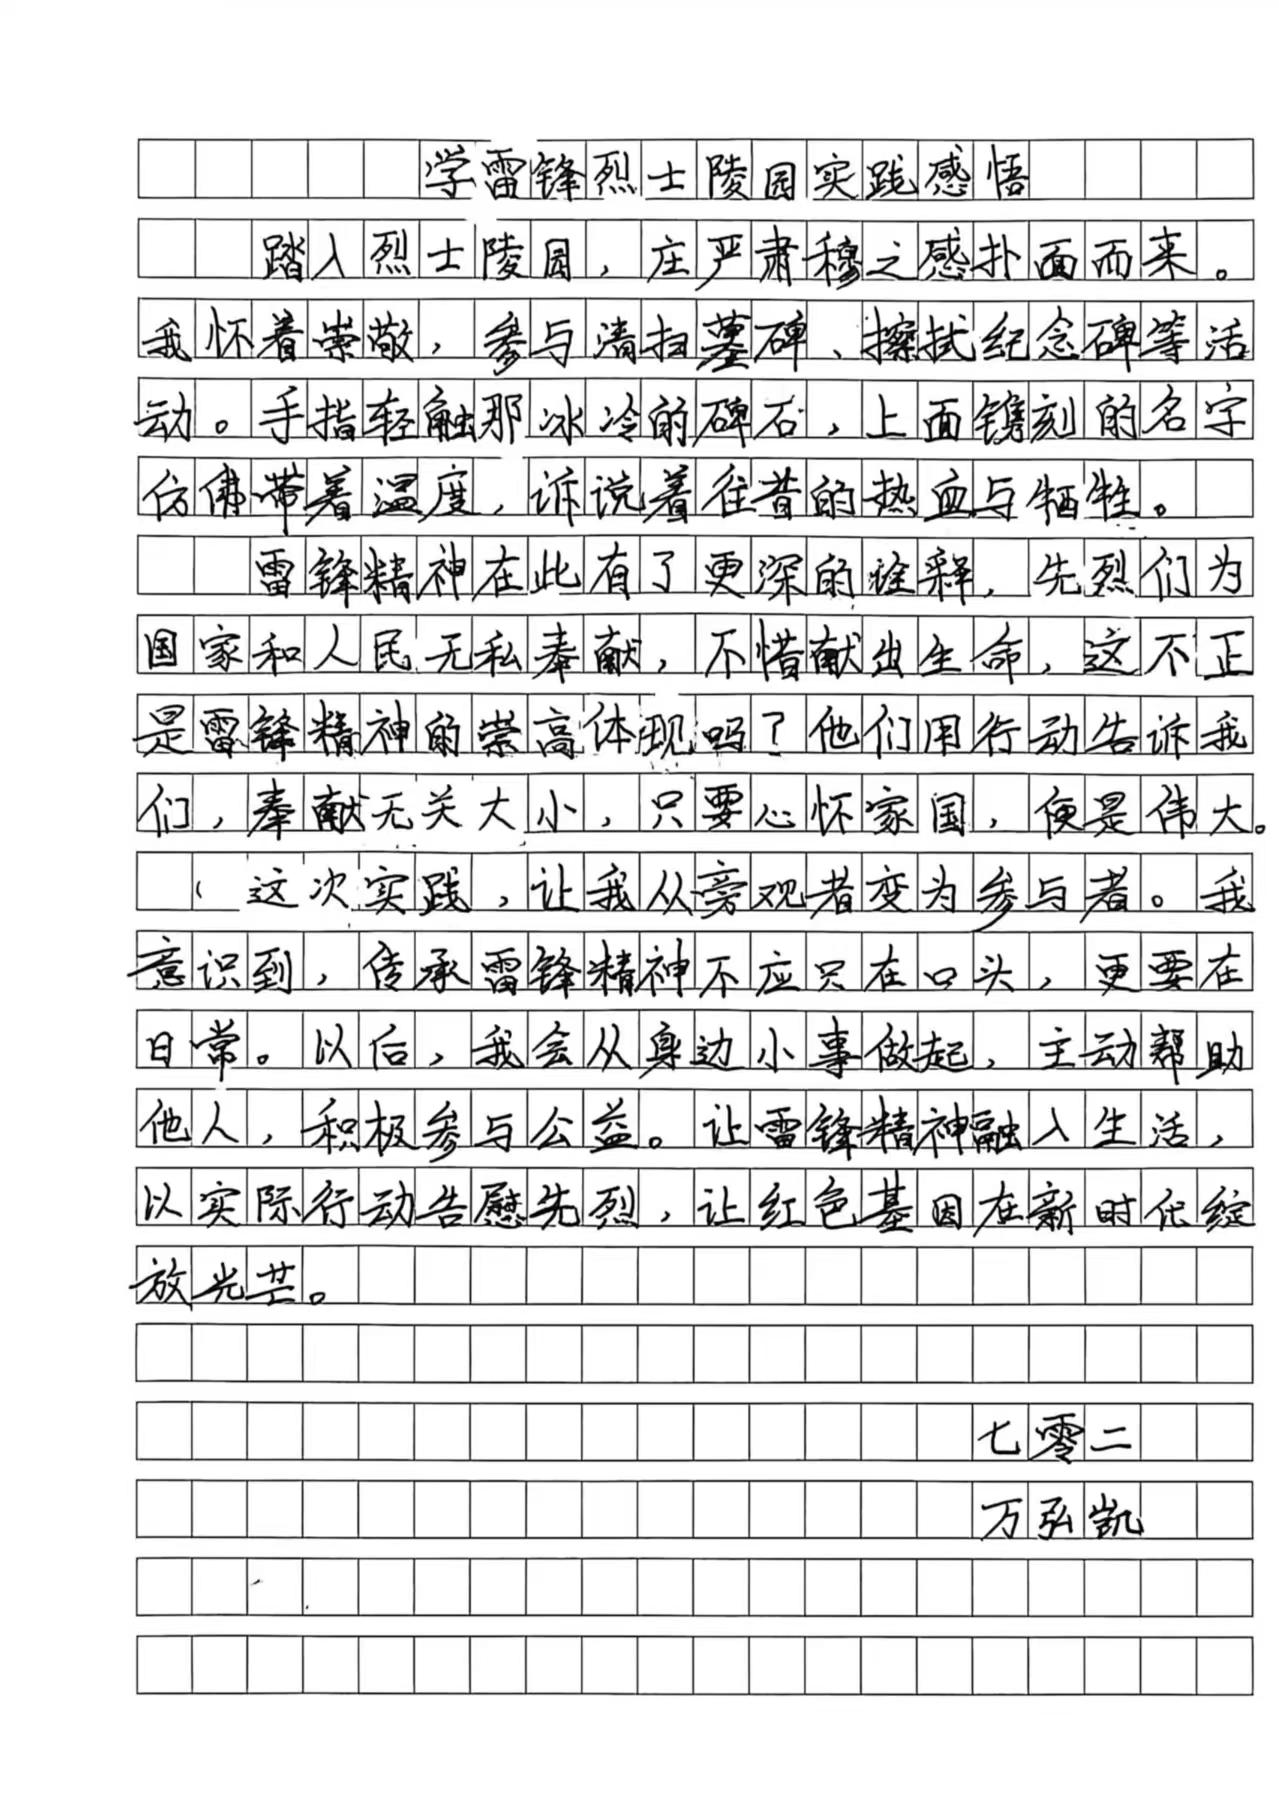 学雷锋烈士陵园实践感悟
踏入烈士陵园，庄严肃穆之感扑面而来。
我怀着崇敬，参与清扫墓碑、擦拭纪念碑等活
动。手指轻触那冰冷的碑石，上面镌刻的名字
仿佛带着温度，诉说着往昔的热血与牺牲。
雷锋精神在此有了更深的诠释，先烈们为
国家和人民无私奉献，不惜献出生命，这不正
是雷锋精神的崇高体现吗？他们用行动告诉我
们，奉献无关大小，只要心怀家国，便是伟大。
这次实践，让我从旁观者变为参与者。我
意识到，传承雷锋精神不应只在口头，更要在
日常。以后，我会从身边小事做起，主动帮助
他人，积极参与公益。让雷锋精神融入生活，
以实际行动告慰先烈，让红色基因在新时代绽
放光芒。
七零二
万弘凯